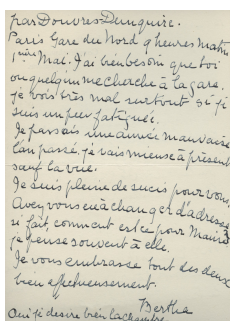 par Douvres-Dunquire.
Paris Gare du Nord 9 heures Matin
1ière Mai. J'ai bien besoin que toi
ou quelqu'un me cherche à la gare.
je vois très mal surtout si je
suis un peu fatiguée.
Je passais une année mauvaise
l'an passé, je vais mieux à présent
sauf la vue.
Je suis pleine de sucis pour vous,
Avez vous eu à changer d'adresse
si fait, comment est ce pour Maurice
je pense souvent à elle.
Je vous embrasse tout des deux
bien affectueusement.
Bertha
Oui je desire bien la chambre